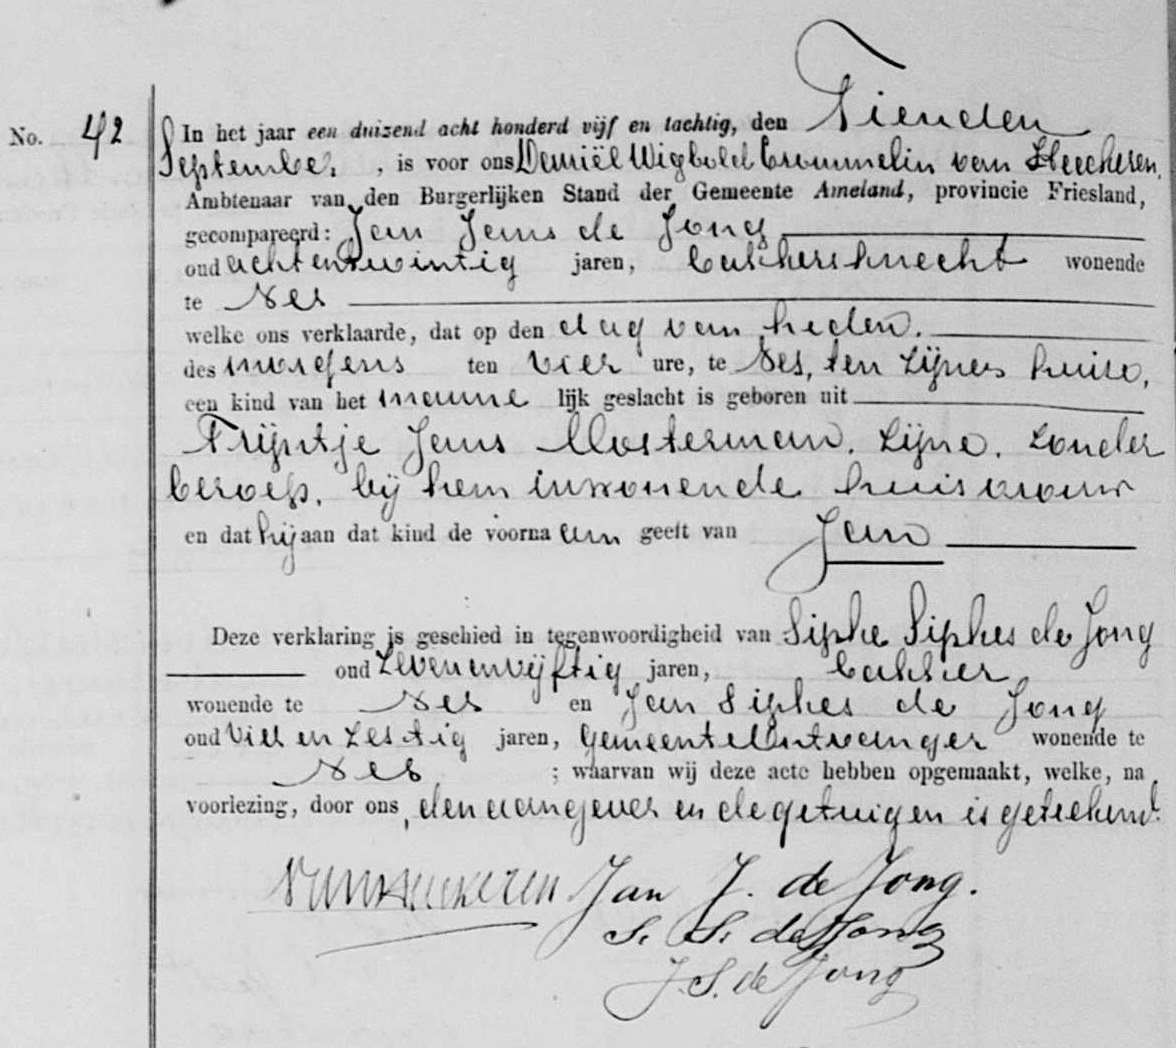 No. 42
In het jaar een duizend acht honderd vijf en tachtig, den Tienden
September, is voor ons Daniël Wigbold Crommelin van Heeckeren,
Ambtenaar van den Burgerlijken Stand der Gemeente Ameland, provincie Friesland,
gecompareerd: Jan Jans de Jong
oud achtentwintig jaren, bakkersknecht wonende
te Nes
welke ons verklaarde, dat op den dag van heden.
des morgens ten vier ure, te Nes, ten zijnen huise,
een kind van het manne lijk geslacht is geboren uit
Trijntje Jans Mosterman. zijne. zonder
beroep. bij hem inwonende huisvrouw
en dat hij aan dat kind de voorna am geeft van Jan
Deze verklaring is geschied in tegenwoordigheid van Sipke Sipkes de Jong
oud zevenenvijftig jaren, bakker
wonende te Nes en Jan Sipkes de Jong
oud vier en zestig jaren, gemeenteontvanger wonende te
Nes ; waarvan wij deze acte hebben opgemaakt, welke, na
voorlezing, door ons, den aangever en de getuigen is geteekend.
Jan J. de Jong.
S. S. de Jong
J. S. de Jong